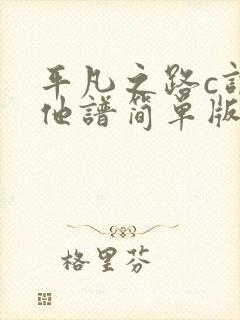 平凡之路c
他譜简單版
格里芬